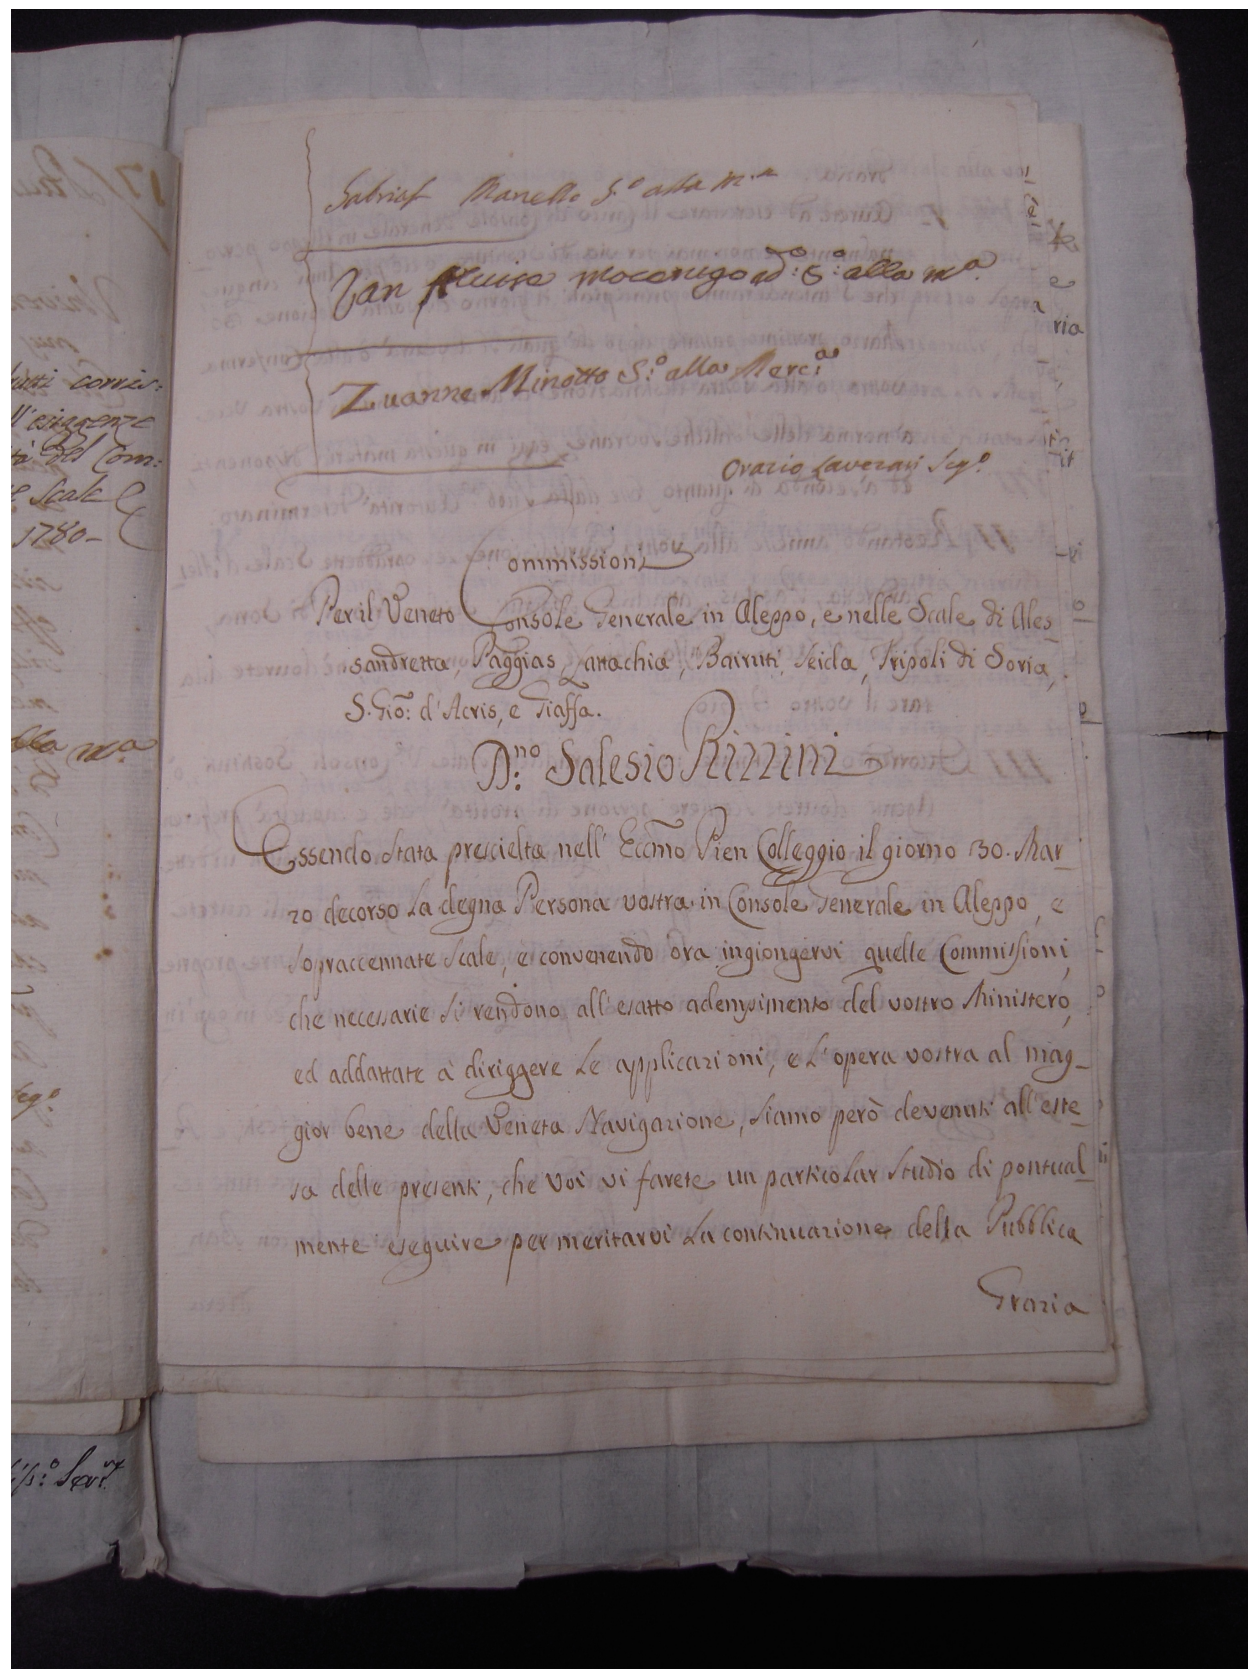 utti corris:
ll'esiggenze
tà del Com:
e Scale
1780-
alla m.a
Seg.o
Gabriel Marcello S.o alla M.a
Zan Alvise Mocenigo 2.do S.o alla m.a
Zuanne Minotto S.o alla Merc.a
Orazio Lavezari Seg.o
Commissioni
Per il Veneto Console Generale in Aleppo, e nelle Scale di Ales-
sandretta, Paggias, Lattachia, Bairuti, Seida, Tripoli di Soria,
S. Gio: d'Acris, e Giaffa.
D:no Salesio Rizzini
Essendo stata prescielta nell' Eccmo Pien Colleggio il giorno 30. Mar-
zo decorso la degna Persona vostra in Console Generale in Aleppo, e
sopraccennate Scale, e convenendo ora ingiongervi quelle Commissioni,
che necessarie si rendono all'esatto adempimento del vostro Ministero,
ed addattate à diriggere le applicazioni, e l'opera vostra al mag-
gior bene della Veneta Navigazione, siamo però devenuti all'este-
sa delle presenti, che voi vi farete un particolar studio di pontual-
mente eseguire per meritarvi la continuazione della Pubblica
Grazia